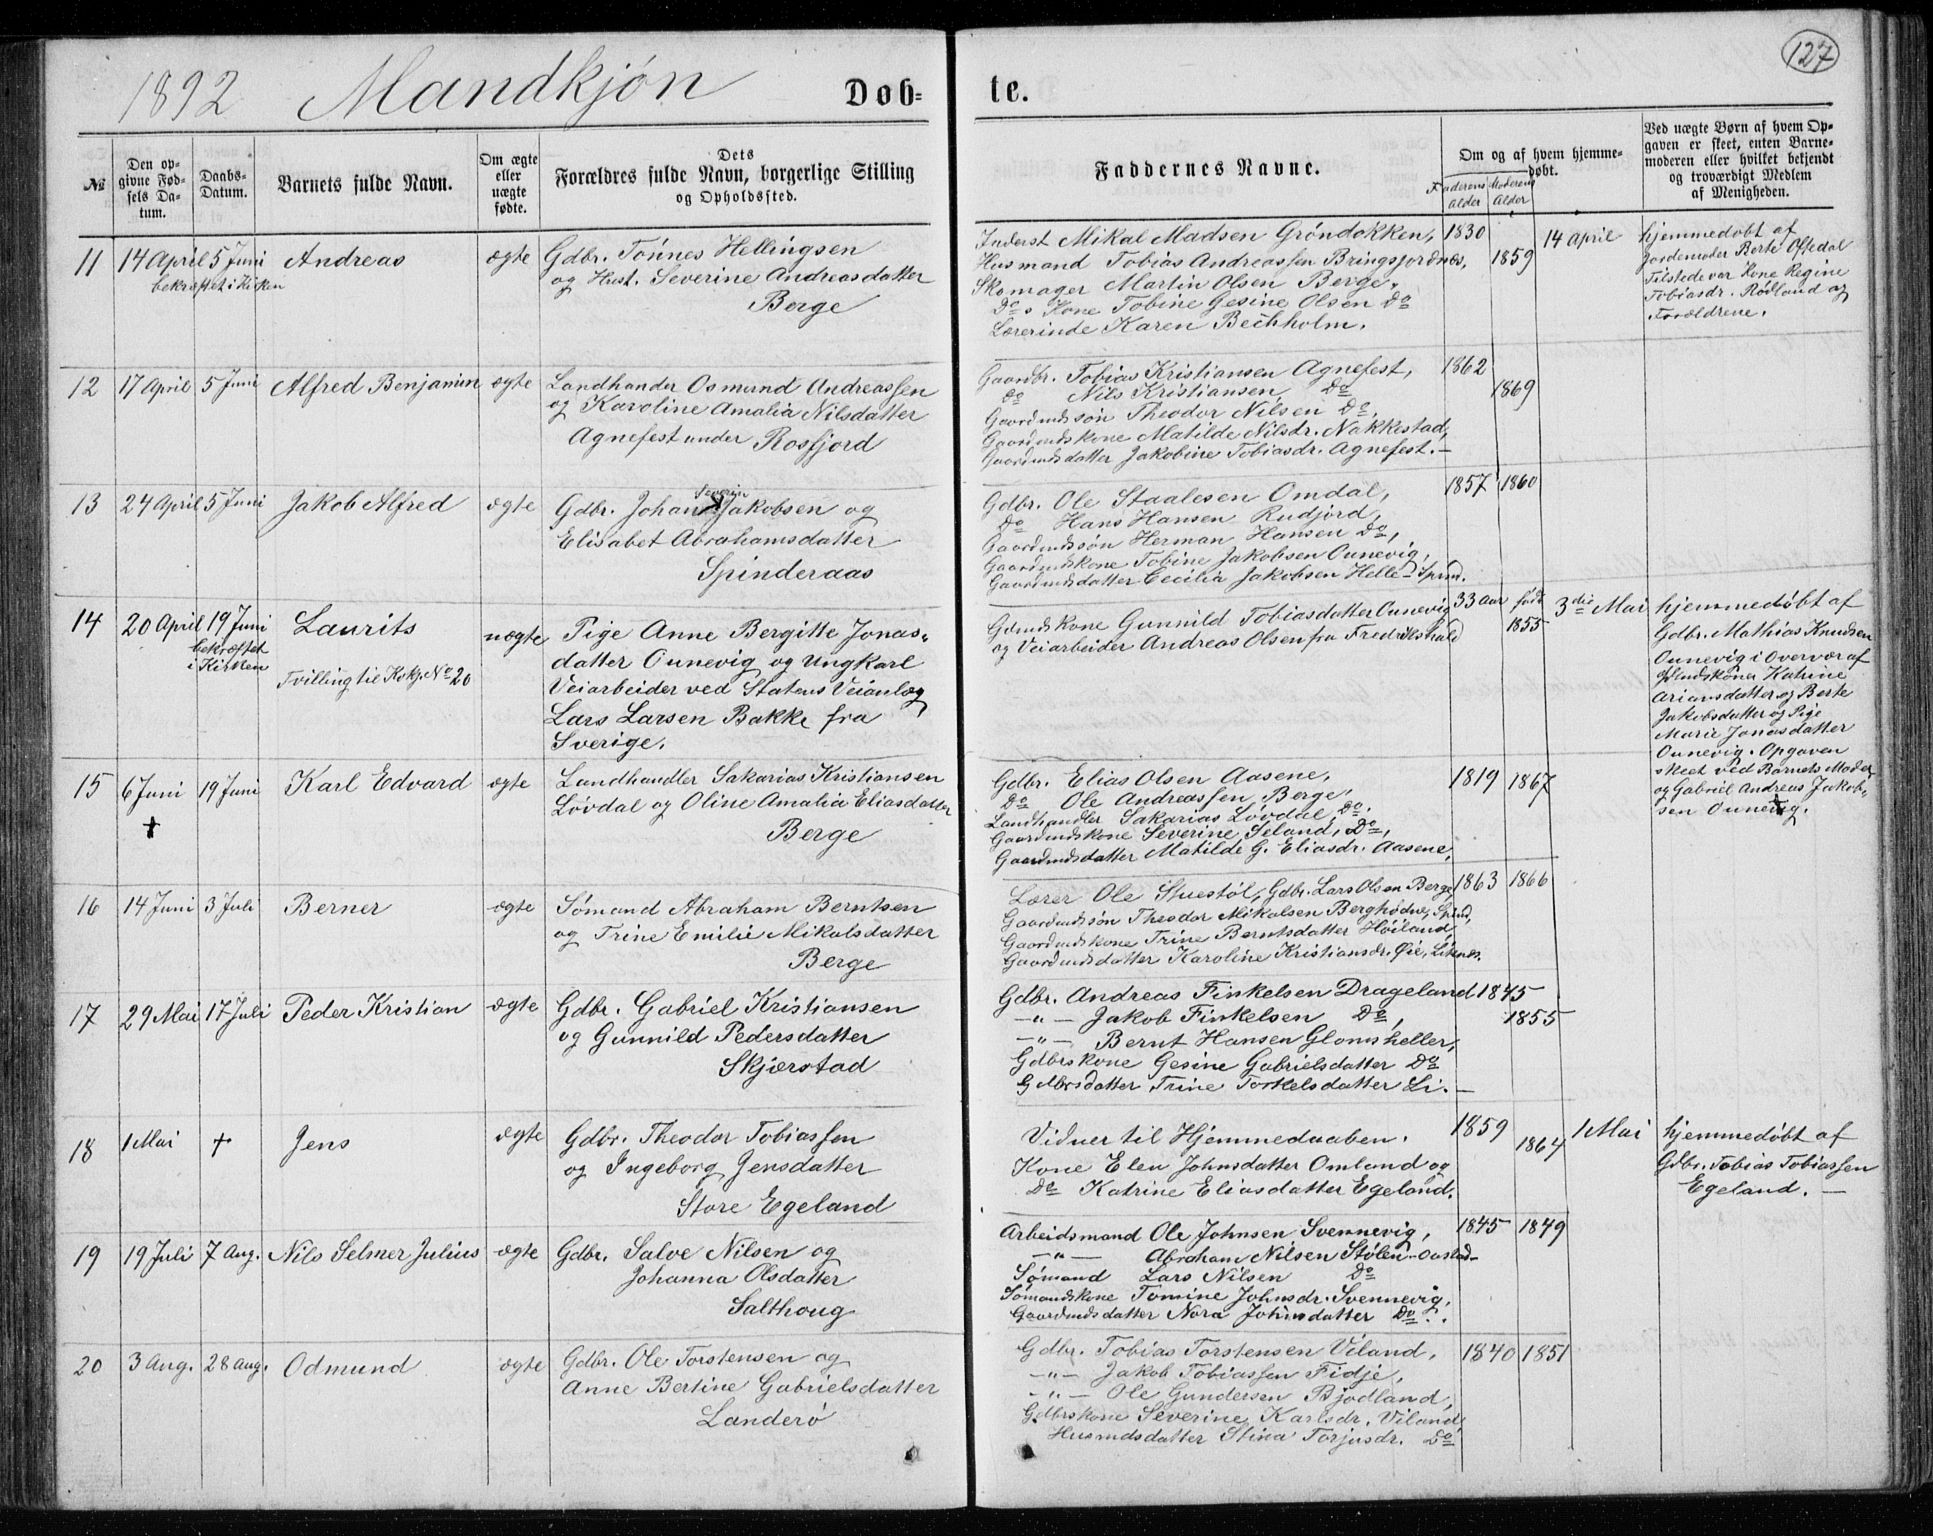 1892 Mandkjøn Døb-
te.
127
№
Den op-
givne Fød-
sels Da-
tum.
Daabs-
Datum.
Barnets fulde Navn.
Om ægte
eller
uægte
fødte.
Dets
Forældres fulde Navn, borgerlige Stilling
og Opholdssted.
Faddernes Navne.
Faderens Alder
Moderens Alder
Om og af hvem hjemme-
døbt.
Ved uægte Børn af hvem Op-
gaven er skeet, enten Barne-
moderen eller hvilket bekjendt
og troværdigt Medlem
af Menigheden.
11 14 April 5 Juni Andreas ægte Gdbr. Tønnes Hellingsen
bekræftet i Kirken
og Hust. Severine Andreasdatter
Berge
Inderst Mikal Madsen Grøndokken, 1830
Husmand Tobias Andreassen Bringsjordnes, 1859
Skomager Martin Olsen Berge,
Do s Kone Tobine Gesine Olsen Do
Lærerinde Karen Bechholm.
14 April
hjemmedøbt af
Jordemoder Berte Oftedal
Tilstede var Kone Regine
Tobiasdr. Rødland og
Forældrene.
12 17 April 5 Juni Alfred Benjamin ægte Landhander Osmund Andreassen
og Karoline Amalia Nilsdatter
Agnefest under Rosfjord
Gaardbr. Tobias Kristiansen Agnefest, 1862
do Nils Kristiansen Do 1869
Gaardmdssøn Theodor Nilsen Do,
Gaardmdskone Matilde Nilsdr. Nakkestad,
Gaardmdsdatter Jakobine Tobiasdr. Agnefest.
13 24 April 5 Juni Jakob Alfred ægte Gdbr. Johan Severin Jakobsen og
Elisabet Abrahamsdatter
Spinderaas
Gdbr. Ole Staalesen Omdal, 1857 1860
Do Hans Hansen Rudjord,
Gaardmdssøn Herman Hansen Do,
Gaardmdskone Tobine Jakobsen Ounevig,
Gaardmdsdatter Cecilia Jakobsen Helle Spind.
14 20 April 19 Juni Laurits uægte Pige Anne Bergitte Jonas-
bekræftet
i Kirken
Tvilling til Kvkj. No 20
datter Ounevig og Ungkarl
Veiarbeider ved Statens Veianlæg
Lars Larsen Bakke fra
Sverige.
Gdmdskone Gunnild Tobiasdatter Ounevig 33 aar født
og Veiarbeider Andreas Olsen fra Fredrikshald 1855
3die Mai
hjemmedøbt af
Gdbr. Mathias Knudsen
Ounevig i Overvær af
Gdmdskoner Katrine
Ariansdatter og Berte
Jakobsdatter og Pige
Marie Jonasdatter
Ounevig. Opgaven
skeet ved Barnets Moder
og Gabriel Andreas Jakob-
sen Ounevig.
15 6 Juni 19 Juni Karl Edvard ægte Landhandler Sakarias Kristiansen
†
Løvdal og Oline Amalia Eliasdatter
Berge
Gdbr. Elias Olsen Aasene, 1819 1867
Do Ole Andreassen Berge,
Landhandler Sakarias Løvdal, Do.
Gaardmdskone Severine Seland, Do,
Gaardmdsdatter Matilde G. Eliasdr. Aasene,
16 14 Juni 3 Juli Berner ægte Sømand Abraham Berntsen
og Trine Emilie Mikalsdatter
Berge
Lærer Ole Stuestøl, Gdbr. Lars Olsen Berge 1863 1866
Gaardmdssøn Theodor Mikalsen Berghødne, Spind,
Gaardmdskone Trine Berntsdatter Høiland
Gaardmdsdatter Karoline Kristiansdr. Øie, Liknes.
17 29 Mai 17 Juli Peder Kristian ægte Gdbr. Gabriel Kristiansen
og Gunnild Pedersdatter
Skjærstad
Gdbr. Andreas Finkelsen Drageland 1845
—"— Jakob Finkelsen Do, 1855
—"— Bernt Hansen Glomsheller,
Gdbrskone Gesine Gabrielsdatter Do
Gdbrsdatter Trine Torkelsdatter Li.
18 1 Mai † Jens ægte Gdbr. Theodor Tobiassen
og Ingeborg Jensdatter
Store Egeland
Vidner til Hjemmedaaben. 1859
Kone Elen Johnsdatter Omland og 1864
Do Katrine Eliasdatter Egeland.
1 Mai
hjemmedøbt af
Gdbr. Tobias Tobiassen
Egeland.
19 19 Juli 7 Aug. Nils Selmer Julius ægte Gdbr. Salve Nilsen og
Johanna Olsdatter
Salthoug
Arbeidsmand Ole Johnsen Svennevig, 1845 1849
—"— Abraham Nilsen Stølen-Oustad
Sømand Lars Nilsen Do
Sømandskone Tomine Johnsdr. Svennevig,
Gaardmdsdatter Nora Johnsdatter Do.
20 3 Aug. 28 Aug. Odmund ægte Gdbr. Ole Torstensen og
Anne Bertine Gabrielsdatter
Landerø
Gdbr. Tobias Torstensen Viland, 1840 1851
—"— Jakob Tobiassen Fidje,
—"— Ole Gundersen Bjodland,
Gdbrskone Severine Karlsdr. Viland
Husmdsdatter Stina Torjusdr. Do